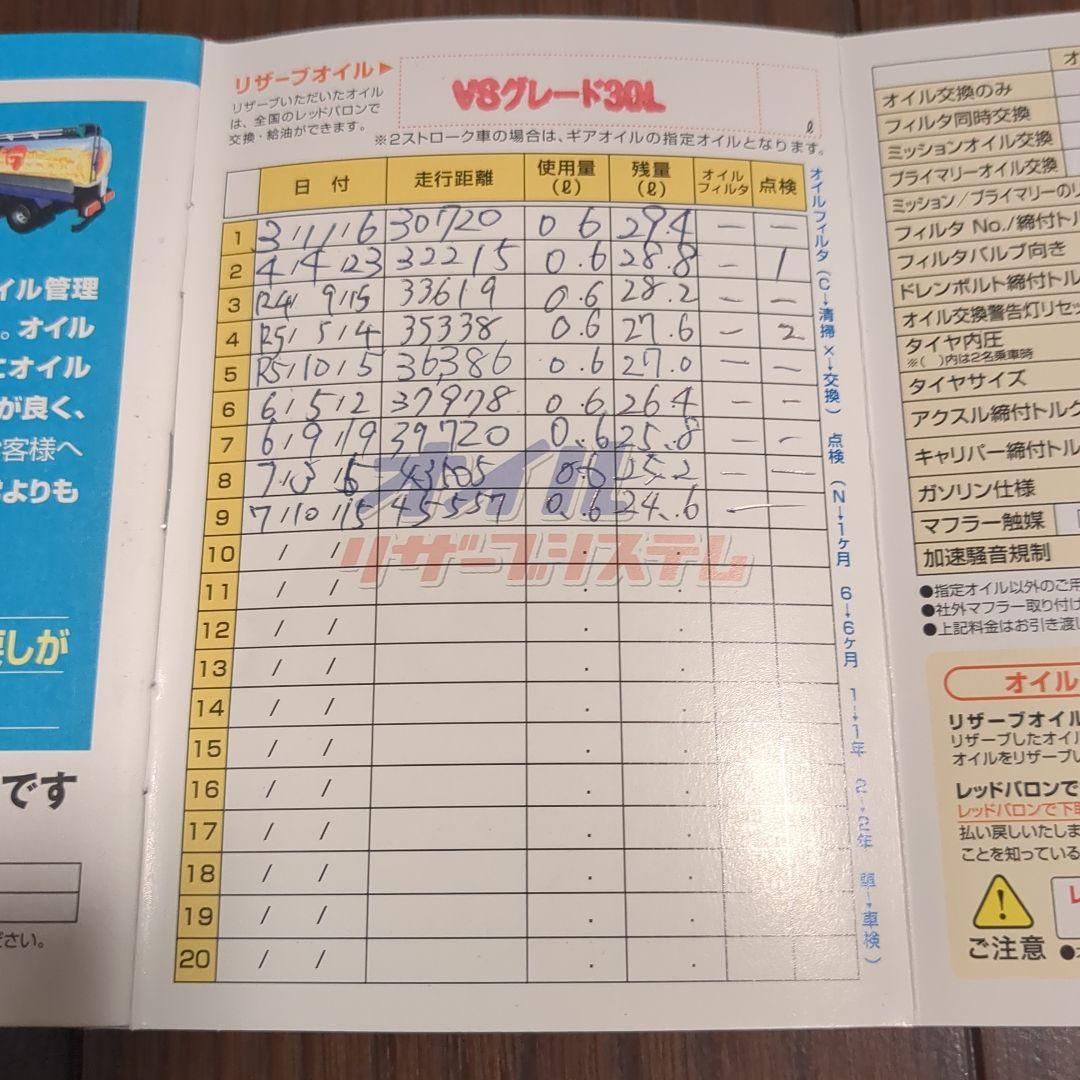 イル管理
。オイル
にオイル
が良く、
客様へ
よりも
戻しが
です
ださい。
リザーブオイル▶
リザーブいただいたオイル
は、全国のレッドバロンで
交換・給油ができます。
V8グレード30L
ℓ
※2ストローク車の場合は、ギアオイルの指定オイルとなります。
日付 走行距離 使用量(ℓ) 残量(ℓ) オイルフィルタ 点検
1 3/11/16 30720 0.6 29.4 — —
2 4/4/23 32215 0.6 28.8 — 1
3 R4/9/15 33619 0.6 28.2 — —
4 R5/5/4 35338 0.6 27.6 — 2
5 R5/10/5 36386 0.6 27.0 — —
6 6/5/2 37978 0.6 26.4 — —
7 6/9/19 39720 0.6 25.8 — —
8 7/3/ 43505 0.6 25.2 — —
9 7/10/15 45557 0.6 24.6 — —
オイル
リザーブシステム
10 / / . .
11 / / . .
12 / / . .
13 / / . .
14 / / . .
15 / / . .
16 / / . .
17 / / . .
18 / / . .
19 / / . .
20 / / . .
オイルフィルタ(C→清掃 ×→交換) 点検(N→1ヶ月 6→6ヶ月 1→1年 2→2年 車→車検)
オ
オイル交換のみ
フィルタ同時交換
ミッションオイル交換
プライマリーオイル交換
ミッション/プライマリーのリ
フィルタ No./締付トル
フィルタバルブ向き
ドレンボルト締付トル
オイル交換警告灯リセッ
タイヤ内圧
※( )内は2名乗車時
タイヤサイズ
アクスル締付トルク
キャリパー締付トル
ガソリン仕様
マフラー触媒
加速騒音規制
●指定オイル以外のご用
●社外マフラー取り付け
●上記料金はお引き渡し
オイル
リザーブオイル
リザーブしたオイル
オイルをリザーブい
レッドバロンで
レッドバロンで下取
払い戻しいたしま
ことを知っている
ご注意